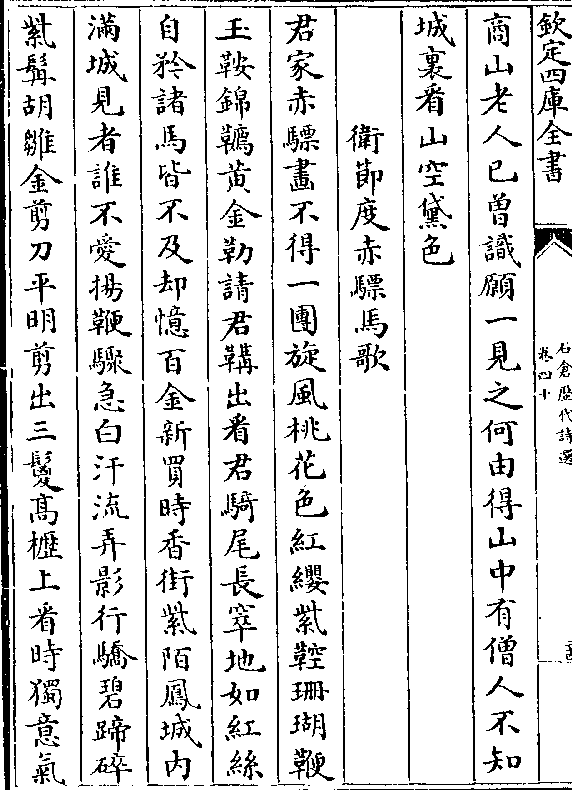 欽定四庫全書
石倉歷代詩選
卷四十
商山老人已曽識願一見之何由得山中有僧人不知
城裏看山空黛色
衛節度赤驃馬歌
君家赤驃畫不得一團旋風桃花色紅纓紫鞚珊瑚鞭
玉鞍錦韉黄金勒請君鞲出看君騎尾長窣地如紅絲
自矜諸馬皆不及却憶百金新買時香街紫陌鳳城内
滿城見者誰不愛揚鞭驟急白汗流弄影行驕碧蹄碎
紫髯胡雛金剪刀平明剪出三鬉髙櫪上看時獨意氣